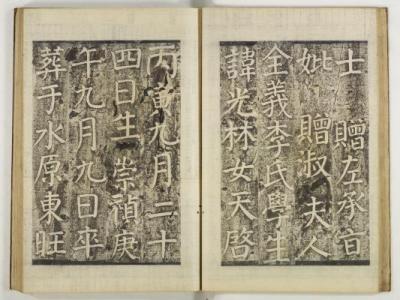 士 贈左承旨
妣 贈淑夫人
全義李氏學生
諱光林女天啓
丙寅九月二十
四日生 崇禎庚
午九月九日卒
葬于水原東旺